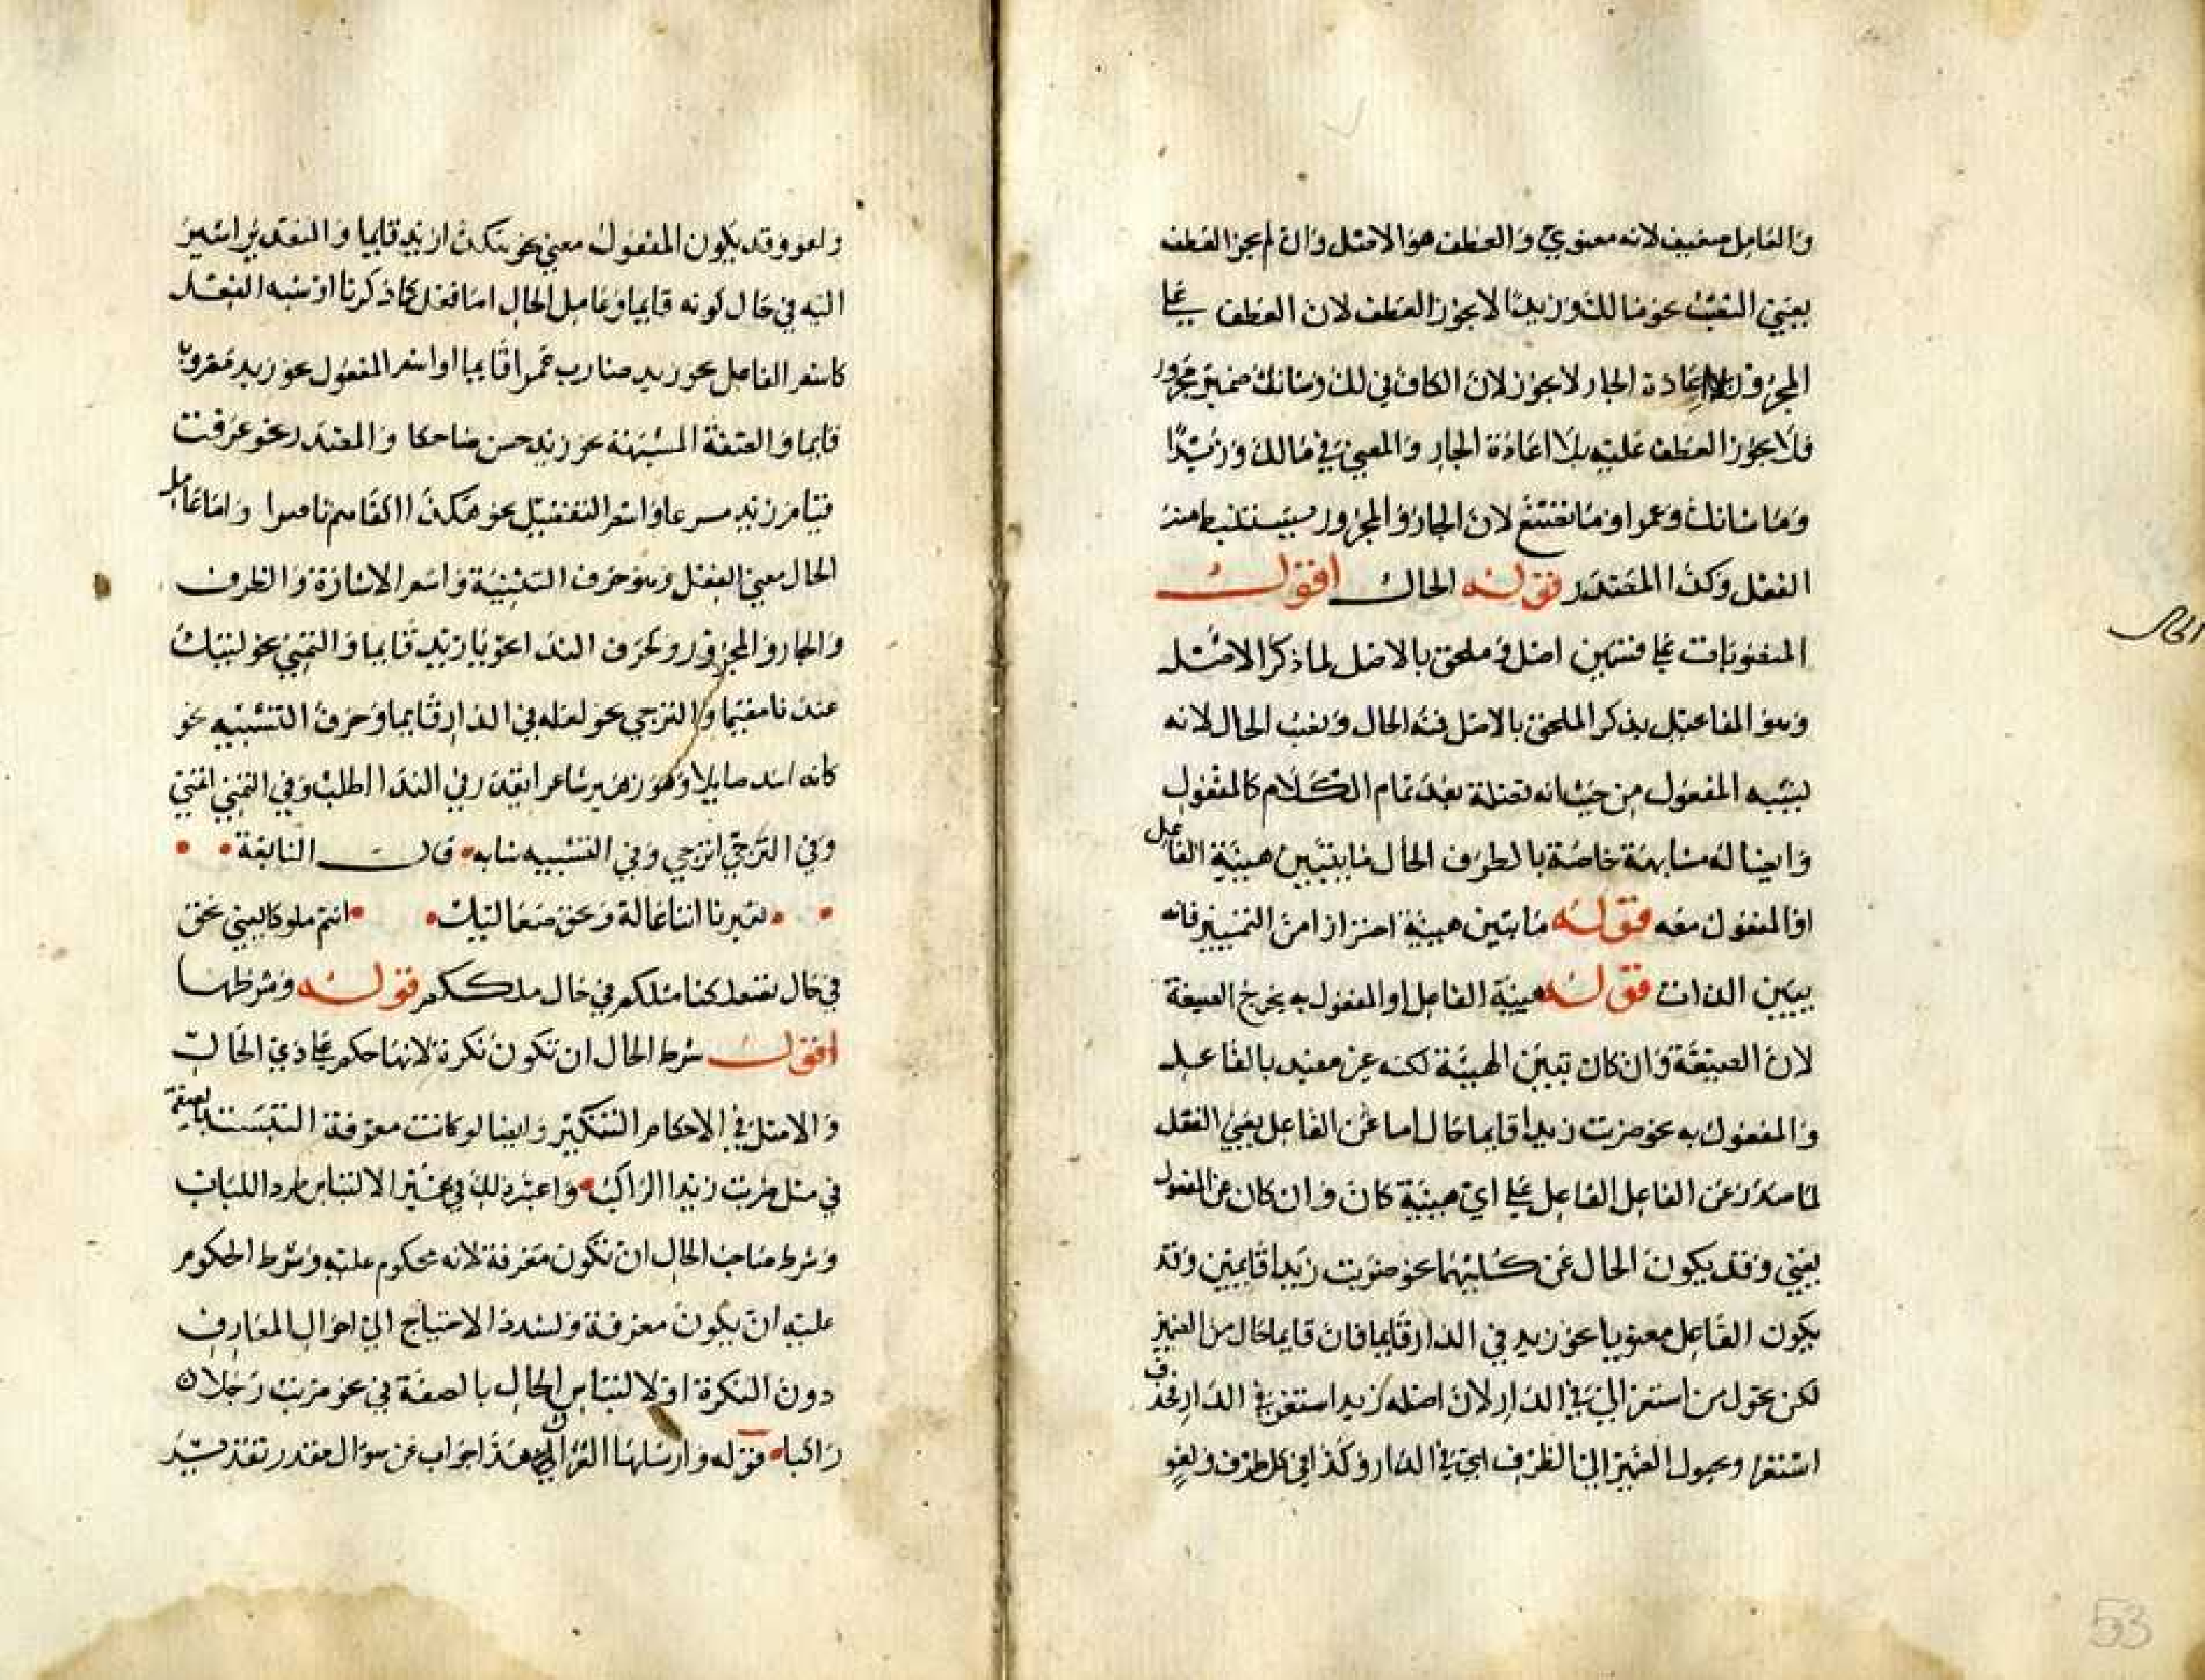 والعامل ضعيف لانه معنوي والعطف هو الاصل وان لم يجز العطف
يعني النصب نحو مالك وزيدا لا يجوز العطف لان العطف على
المجرور بلا اعادة الجار لا يجوز لان الكاف في لك وشانك ضمير مجرور
فلا يجوز العطف عليه بلا اعادة الجار والمعنى في مالك وزيدا
وما شانك وعمرا وما تصنع لان الجار والمجرور يستنبط منه
الفعل وكذا المصدر قوله الحال اقول
المنصوبات على قسمين اصل وملحق بالاصل لما ذكر الاصل
وهو المفاعيل يذكر الملحق بالاصل فمنه الحال ونصب الحال لانه
يشبه المفعول من حيث انه فضلة بعد تمام الكلام كالمفعول
وايضا له مشابهة خاصة بالظرف الحال ما يبين هيئة الفاعل
او المفعول معه قوله ما يبين هيئة احتراز امن التمييز فانه
يبين الذات قوله هيئة الفاعل او المفعول به يخرج الصيغة
لان الصيغة وان كان تبين الهيئة لكنه غير مقيد بالفاعل
والمفعول به نحو ضربت زيدا قايما حال اما عن الفاعل يعني الفعل
لما صدر عن الفاعل الفاعل على اي هيئة كان وان كان عن المفعول
يعني وقد يكون الحال عن كليهما نحو ضربت زيدا قايمين وقد
يكون الفاعل معنويا نحو زيد في الدار قايما فان قايما حال من الضمير
لكن تحول من استقر الى في الدار لان اصله زيد استقر في الدار فحذف
استقر وتحول الضمير الى الظرف اي في الدار وكذا في كل ظرف ولغو
الحال
ولغو وقد يكون المفعول معنى نحو هكذا زيد قايما والتقدير اشير
اليه في حال كونه قايما وعامل الحال اما فعل كما ذكرنا او شبه الفعل
كاسم الفاعل نحو زيد ضارب عمرا قايما او اسم المفعول نحو زيد مضروب
قايما والصفة المشبهة نحو زيد حسن ضاحكا والمصدر نحو عرفت
قيامر زيد مسرعا واسم التفضيل نحو هكذا القاسم ناصرا واما عامل
الحال معنى الفعل وهو حرف التنبيه واسم الاشارة والظرف
والجار والمجرور وحرف الندا نحو يا زيد قايما والتمني نحو ليتك
عندنا مقيما والترجي نحو لعله في الدار قايما وحرف التشبيه نحو
كانه اسد صايلا وهو زهير شاعرا يقدر في الندا اطلب وفي التمني اتمنى
وفي الترجي اترجي وفي التشبيه شابه قال النابغة
تعيرنا اننا عالة ونحن صعاليك انتم ملوكا يعني نحن
في حال تصعلكنا مثلكم في حال ملككم قوله وشرطها
اقول شرط الحال ان تكون نكرة لانها حكم على ذي الحال
والاصل في الاحكام التنكير وايضا لو كانت معرفة التبست بالصفة
في مثل ضربت زيدا الراكب واعتبر ذلك في غير الالتباس طردا للباب
وشرط صاحب الحال ان تكون معرفة لانه محكوم عليه وشرط المحكوم
عليه ان يكون معرفة ولشدة الاحتياج الى احوال المعارف
دون النكرة او لالتباس الحال بالصفة في نحو ضربت رجلا
راكبا قوله وارسلها العراك هذا جواب عن سوال مقدر تقديره
53